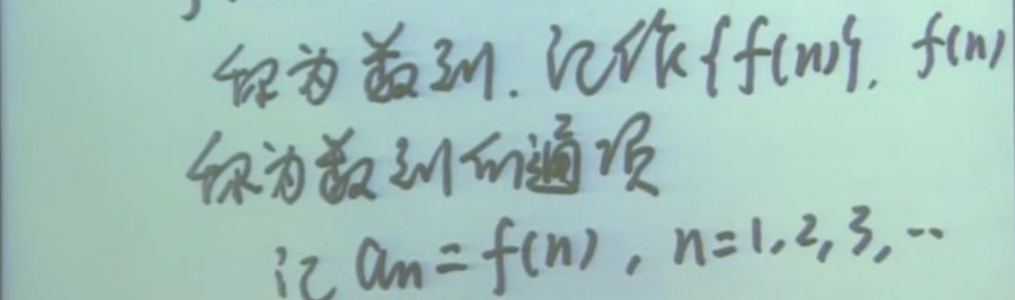 称为数列. 记作{f(n)}. f(n)
称为数列的通项
记 an = f(n), n=1,2,3,...